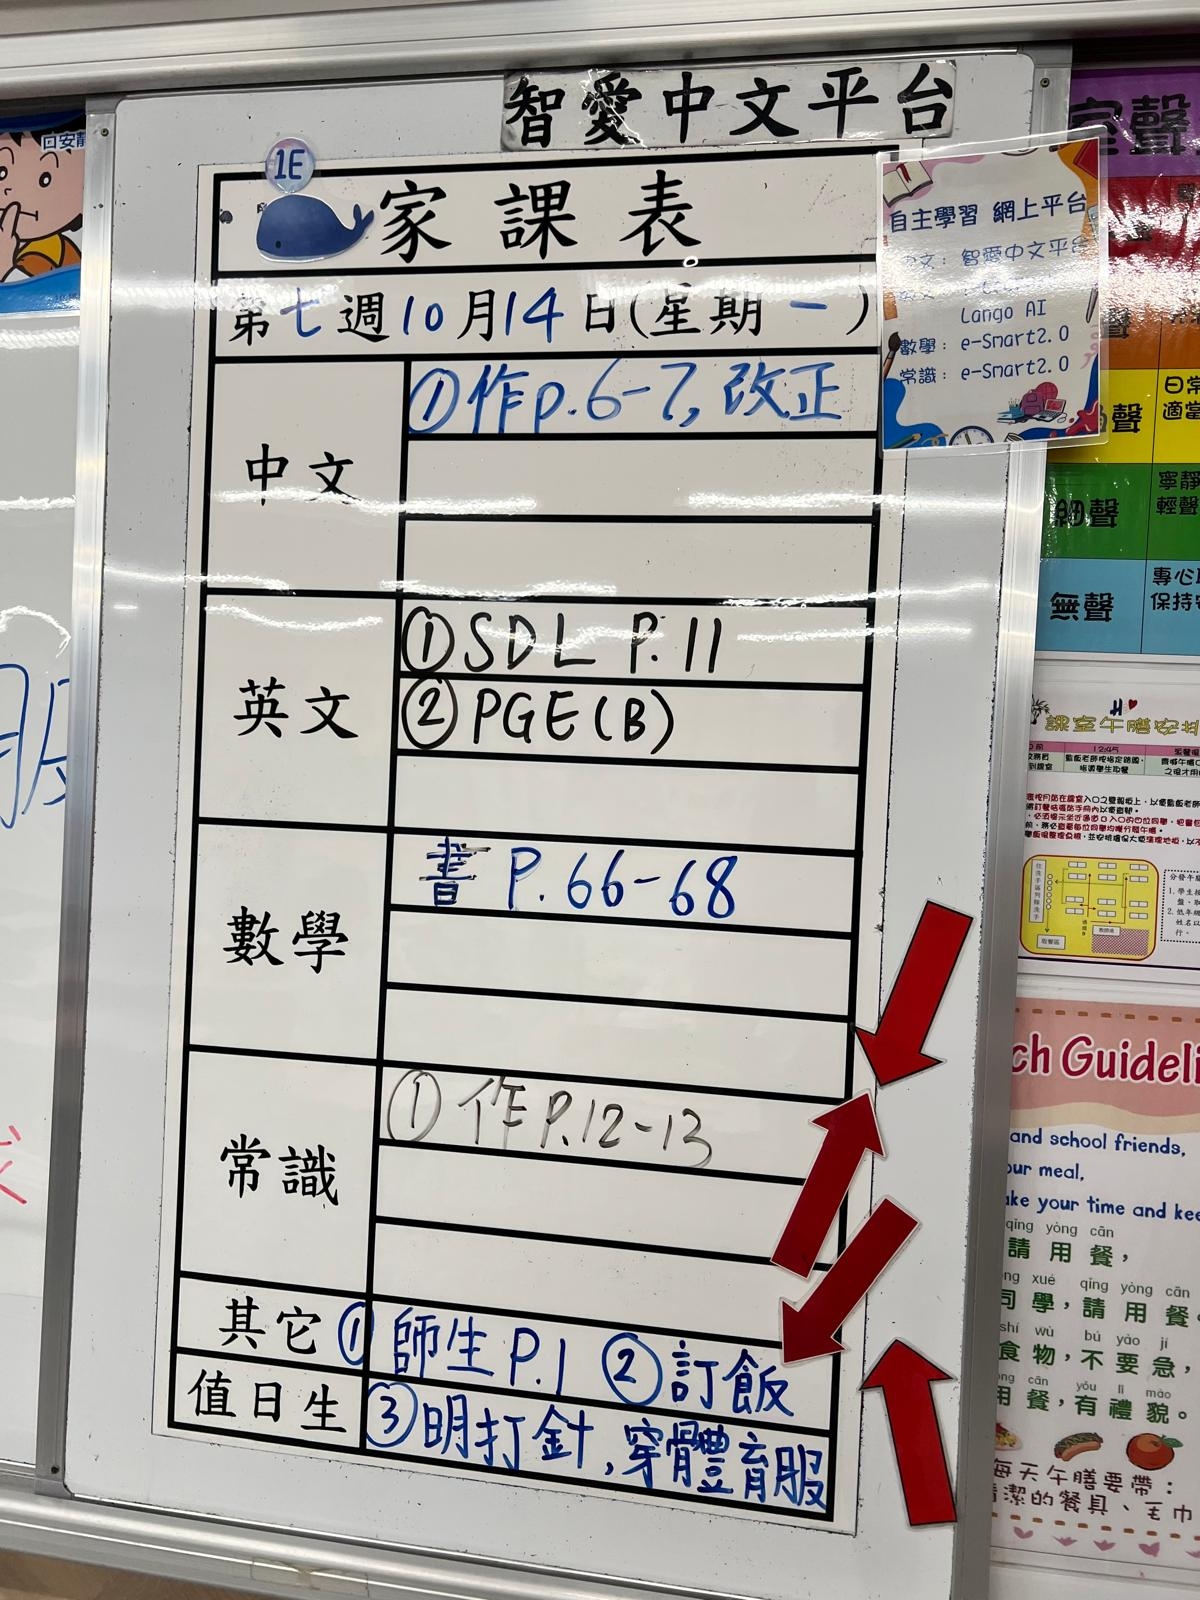 智愛中文平台
1E
家課表
第七週10月14日(星期一)
中文
①作p.6-7, 改正
英文
①SDL P.11
②PGE(B)
數學
書 P.66-68
常識
①作P.12-13
其它
①師生P.1 ②訂飯
值日生
③明打針,穿體育服
自主學習 網上平台
智愛中文平台
Lango AI
數學: e-Smart2.0
常識: e-Smart2.0
室聲
日常
適當
聲
細聲
寧靜
輕聲
無聲
專心
保持
課室午膳安排
12:45
取餐區
ch Guideli
and school friends,
our meal,
ake your time and kee
qǐng yòng cān
請用餐,
xué qǐng yòng cān
同學,請用餐
shí wù bú yào jí
食物,不要急,
cān yǒu lǐ mào
用餐,有禮貌。
每天午膳要帶:
清潔的餐具、毛巾